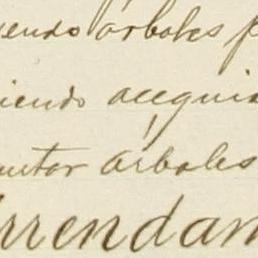 yendo árboles p
iendo acequia
ntar árboles
rrendam